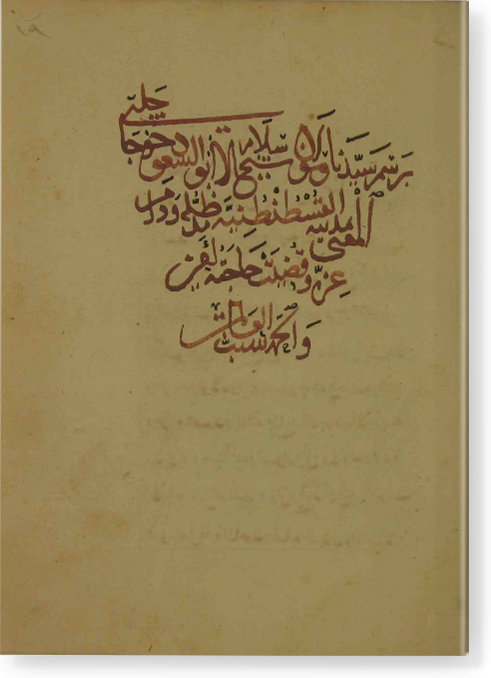 برسم سيدنا ومولانا شيخ الاسلام ابو السعود خوجا
چلبي
المفتي بمدينة القسطنطنية مد ظله ودام
عزه وقضيت حاجته
والحمد لله رب العالمين